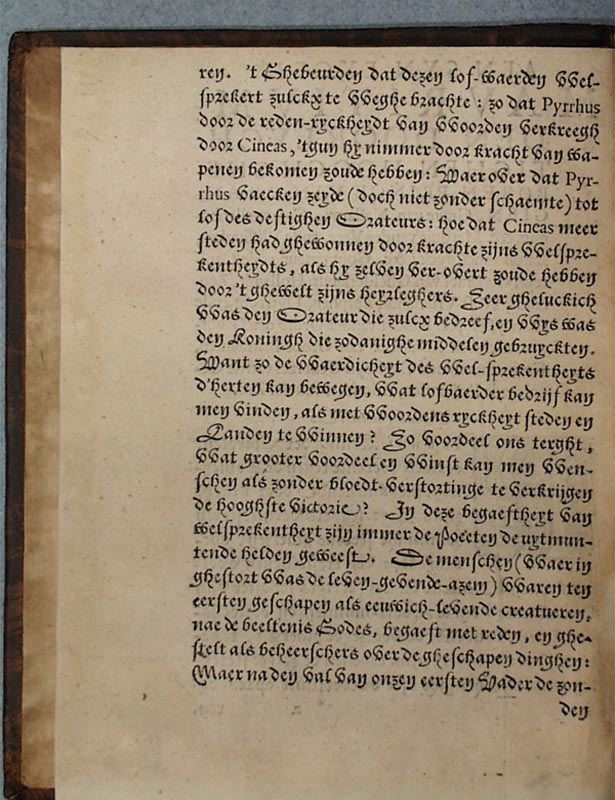 ren. 't Ghebeurden dat dezen lof-waerden VVel-
sprekert zulckx te VVeghe brachte: zo dat Pyrrhus
door de reden-ryckheydt van VVoorden verkreegh
door Cineas, 'tgun hy nimmer door kracht van wa-
penen bekomen zoude hebben: VVaer over dat Pyr-
rhus vaecken zeyde (doch niet zonder schaemte) tot
lof des deftighen Orateurs: hoe dat Cineas meer
steden had ghewonnen door krachte zijns VVelspre-
kentheydts, als hy zelven ver-overt zoude hebben
door 't ghewelt zijns heyrleghers. Zeer gheluckich
VVas den Orateur die zulcx bedreef, en VVys was
den Koningh die zodanighe middelen gebruyckten.
VVant zo de VVaerdicheyt des VVel-sprekentheyts
d'herten kan bewegen, VVat lofbaerder bedrijf kan
men vinden, als met VVoordens ryckheyt steden en
Landen te VVinnen? Zo voordeel ons terght,
VVat grooter voordeel en VVinst kan men VVen-
schen als zonder bloedt-verstortinge te verkrijgen
de hooghste victorie? In deze begaeftheyt van
welsprekentheyt zijn immer de Poëeten de uytmun-
tende helden geweest. De menschen (VVaer in
ghestort VVas de leven-gevende-azem) VVaren ten
eersten geschapen als eeuwich-levende creatueren,
nae de beeltenis Godes, begaeft met reden, en ghe-
stelt als beheerschers over de gheschapen dinghen:
Maer na den val van onzen eersten Vader de zon-
den